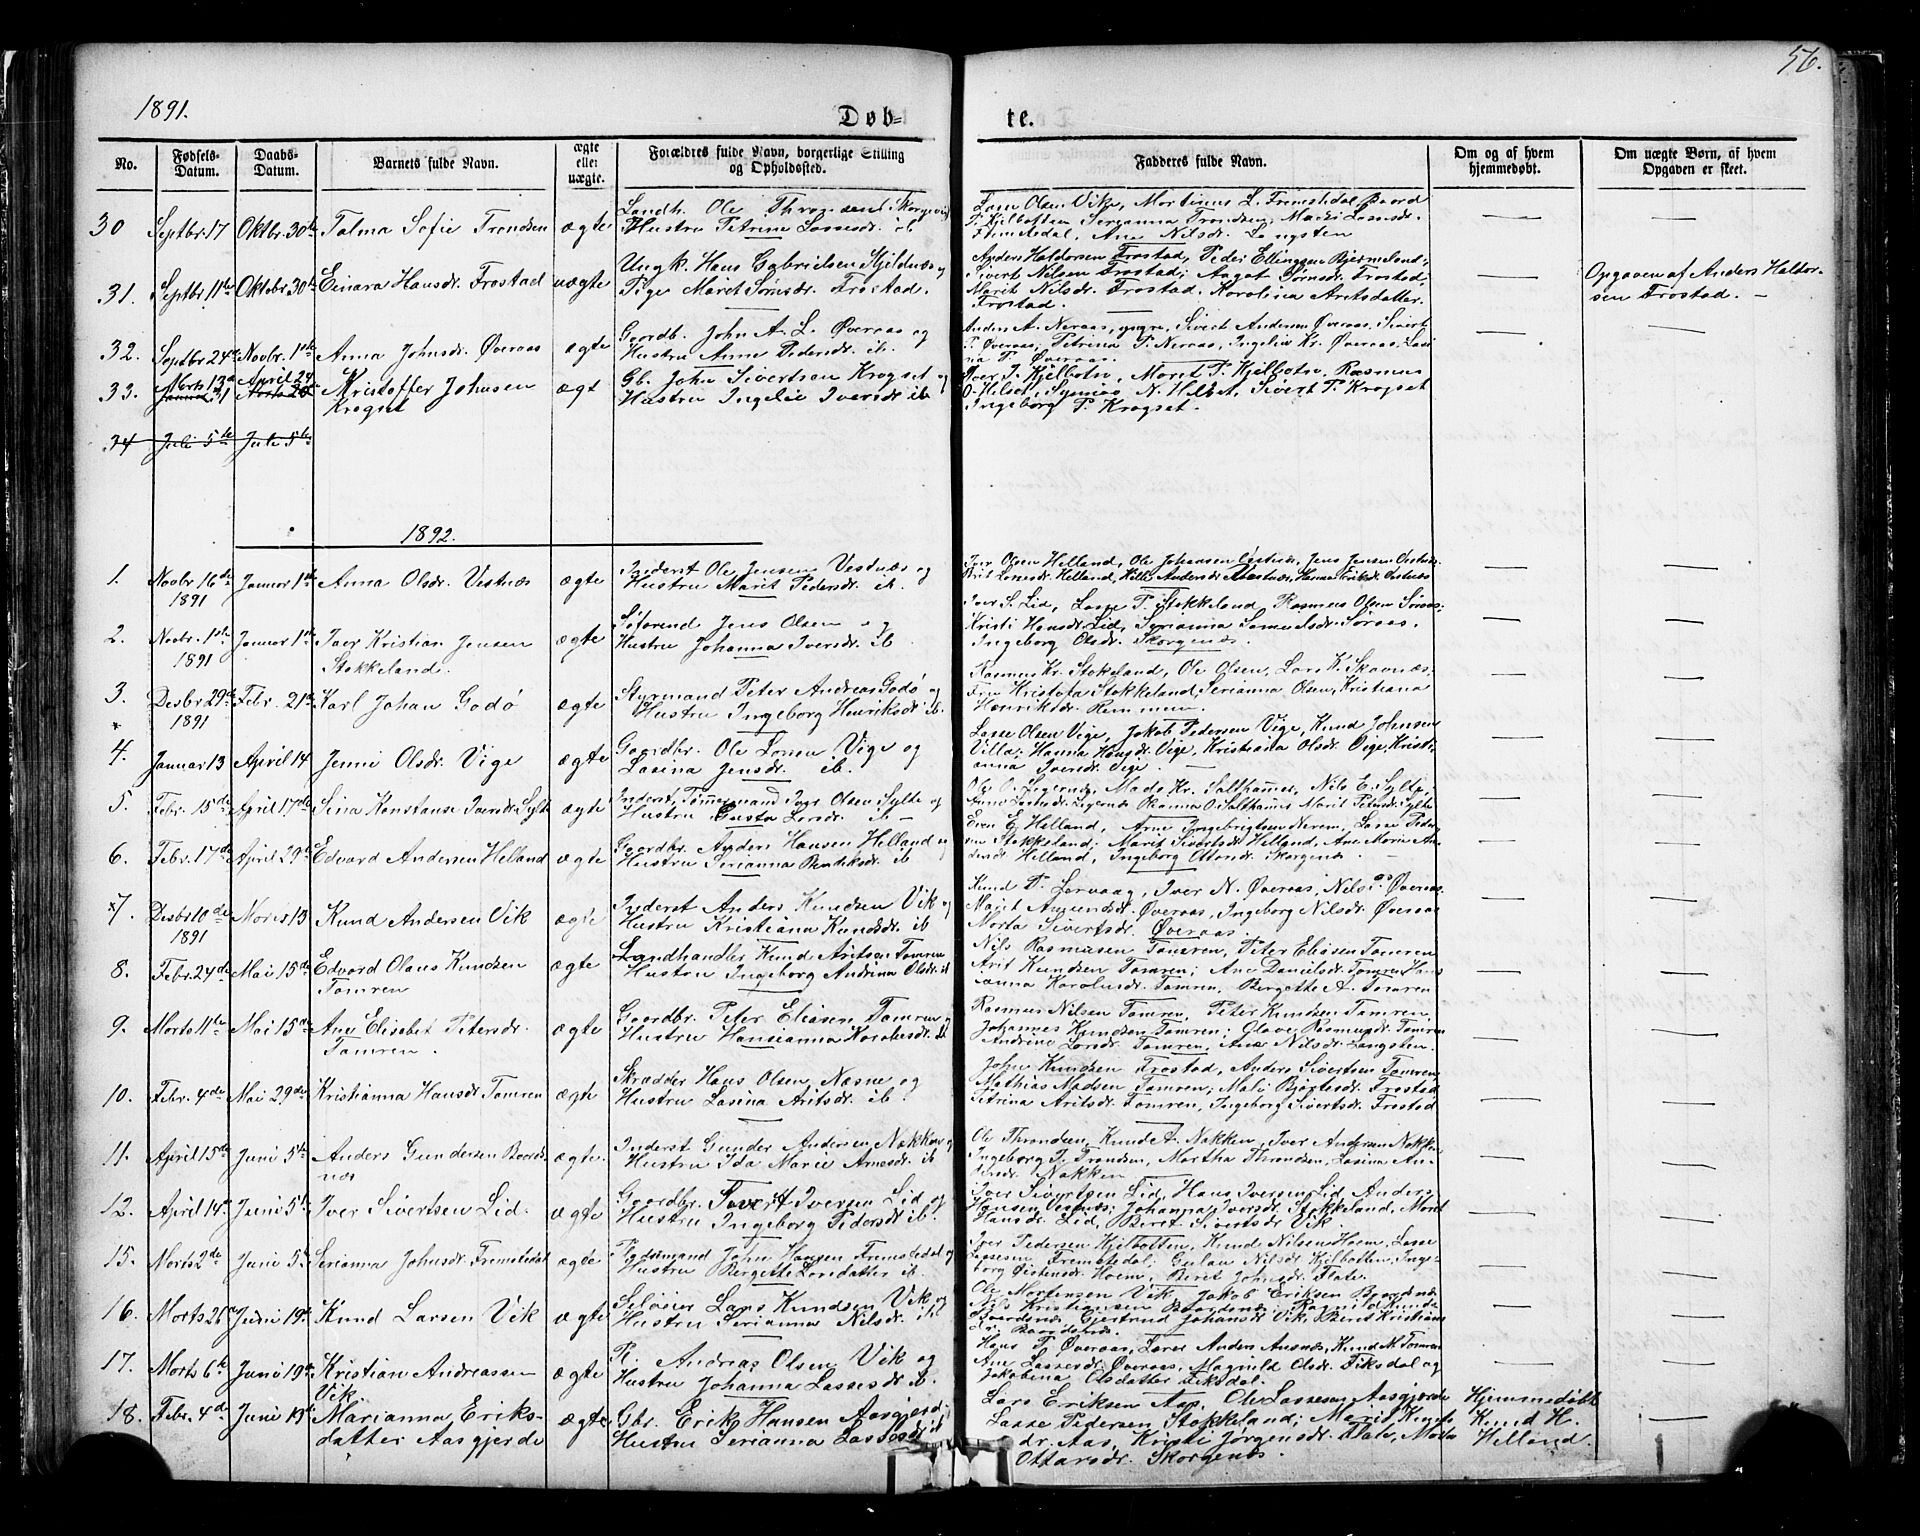 1891.
Døb-
te.
56.
No.
Fødsels-
Datum.
Daabs-
Datum.
Barnets fulde Navn.
ægte
eller
uægte.
Forældres fulde Navn, borgerlige Stilling
og Opholdssted.
Fadderes fulde Navn.
Om og af hvem
hjemmedøbt.
Om uægte Børn, af hvem
Opgaven er skeet.
30 Septbr. 17 Oktbr. 30te Talma Sofie Trondsen ægte
Hustru Petrine Lassesdr. ib
Lasse Olsen Vike, Mortinus L. Fremstedal
Fremstedal, Ane Nilsdr. Langsten
31. Septbr 11te Oktobr. 30te Einara Hansdr. Frostad uægte
Ungk. Hans Gabrielsen
Pige Maret Frostad.
Anders Haldorsen Frostad, Peder Ellingsen Bjermeland,
Sivert Nilsen Frostad; Aagot Frostad,
Marit Nilsdr. Frostad, Karolina Aritsdatter
Frostad.
Opgaven af Anders Haldor-
sen Frostad. —
32. Septbr 24de Novbr. 1ste Anna Johnsdr. Øveraas ægte
Gaardb. John A. L. Øveraas og
Hustru Anne Pedersdr. ib.
Anders A. Neraas, yngre, Sivert Andersen Øveraas, Sivert
P. Øveraas; Petrina P. Neraas, Ingelie Kr. Øveraas, Lasi
na P. Øveraas.
33. Marts 13de April 24 Kristoffer Johnsen
Krogset ægt
Gb. John Sivertsen Krogset og
Hustru Ingelie Iversdr ib
Iver I. Kjelbotn, Maret P. Kjelbotn, Rasmus
O. Helset, N. Helset, Sivert P. Krogset
Ingeborg P. Krogset.
34 Juli 5te Juli 5te
1892.
1. Novbr 16de
1891 Januar 1ste Anna Olsdr. Vestnæs ægte
Inderst Ole Jensen Vestnæs og
Hustru Marit Pedersdr. ib.
Iver Olsen Helland, Ole Johansen
2. Novbr. 1ste
1891 Januar 1ste Iver Kristian Jensen
Stokkeland. ægte
Søfarend Jens Olsen og
Hustru Johanna Iversdr. ib
Iver S. Lid, Lasse P. Stokkeland Rasmus Olsen
Kristi Hansdr. Lid,
Ingeborg Olsdr. Skorgenæs.
3. Desbr 29de
1891 Febr. 21de Karl Johan Godø ægte
Styrmand Peter Andreas Godø og
Hustru Ingeborg Henriksdr ib.
Rasmus Kr. Stokeland, Ole Olsen, Lars K. Skavnæs;
Fru Kristofa Stokkeland, Serianna Olsen, Kristiana
Henriksdr. Remmem.
4. Januar 13 April 14 Jenni Olsdr. Vige ægte
Gaardbr. Ole Larsen Vige og
Lasina Jensdr. ib.
Lasse Olsen Vige, Jakob Pedersen Vige, Knud Johnsen
Villa; Hanna Hansdr. Vige, Kristiana Olsdr. Vige, Kristi-
anna Iversdr. Vige.
5. Febr. 15de April 17de Sina Konstanse Iversdr. Sylte ægte
Inderst, Tømmermand Iver Olsen Sylte og
Hustru Gusta Larsdr. ib —
Mads Kr. Salthamer, Nils E. Sylte,
6. Febr. 17de April 29de Edvard Andersen Helland ægte
Gaardbr. Anders Hansen Helland og
Hustru Serianna Bendiksdr. ib
Even E. Helland, Arne Ingebrigtsen Nerem, Lasse Peder
sen Stokkeland; Marit Sivertsdr. Helland, Ane Marie An-
dersdr. Helland, Ingeborg Ottarsdr. Skorgenæs.
7. Desbr 10de
1891 Marts 13 Knud Andersen Vik ægte
Inderst Anders Knudsen Vik og
Hustru Kristiana Knudsdr. ib
Knud P. Lervaag, Iver N. Øveraas, Nils Øveraas
Maret Amundsdr. Øveraas, Ingeborg Nilsdr. Øveraas
Marta Sivertsdr. Øveraas.
8. Febr. 24de Mai 15de Edvard Olaus Knudsen
Tomren ægte
Landhandler Knud Aritsen Tomren
Hustru Ingeborg Andrina Olsdr. ib
Nils Rasmusen Tomren, Peter Eliasen Tomren
Arit Knudsen Tomren; Ane Danielsdr. Tomren Hans
ianna Karolusdr. Tomren, Bergette A. Tomren
9. Marts 11te Mai 15de Ane Elisabet Petersdr.
Tomren. ægte
Gaardbr. Peter Eliasen Tomren og
Hustru Hansianna Karolusdr. ib
Rasmus Nilsen Tomren, Peter Knudsen Tomren,
Johannes Knudsen Tomren; Olave Rasmusdr. Tomren
Andrine Larsdr. Tomren, Ane Nilsdr. Langsten.
10. Febr. 4de Mai 29de Kristianna Hansdr. Tomren ægte
Skrædder Hans Olsen Næsne og
Hustru Lasina Aritsdr. ib.
John Knudsen Frostad, Anders Sivertsen Tomren,
Mathias Madsen Tomren; Mali Bjørtesdr. Frostad
Petrina Aritsdr. Tomren, Ingeborg Sivertsdr. Frostad
11. April 15de Juni 5te Anders Gundersen Baards
næs ægte.
Inderst Gunder Andersen Nakken og
Hustru Ida Marie Arnesdr. ib
Ole Throndsen, Knud A. Nakken, Iver Andersen Nakken
Ingeborg P. Trondsen, Martha Throndsen, Lasina An-
dersdr. Nakken
12. April 14de Juni 5te Iver Sivertsen Lid. ægte
Gaardbr. Sivert Iversen Lid og
Hustru Ingeborg Pedersdr ib.
Iver Sivertsen Lid, Hans Iversen Lid, Anders
Hansen Vestnæs; Johanna Iversdr. Stokkeland, Maret
Hansdr. Lid, Beret Sivertsdr Vik.
15. Marts 2de Juni 5te Serianna Johnsdr. Fremstedal ægte
Pladsmand John Hansen Fremstedal og
Hustru Bergette Larsdatter ib.
Iver Pedersen Kjelbotten, Knud Nilsen Hoem, Lasse
Lassesen Fremstedal; Gulau Nilsdr Kjelbotten, Inge-
borg Øistensdr. Hoem, Beret Johnsdr. Flate.
16. Marts 26de Juni 19de Knud Larsen Vik ægte
Seløier Lars Knudsen Vik og
Hustru Serianna Nilsdr. ib
Ole Mortensen Vik, Jakob Eriksen Baardsnæs
Nils Kristiansen Baardsnæs, Ragnild Knuds
dr. Baardsnæs, Gjertrud Johansdr Vik, Beret Kristians
dr. Baardsnæs.
17. Marts 6te Juni 19de Kristian Andreassen
Vik. ægte
Pl. Andreas Olsen Vik og
Hustru Johanna Lassesdr ib.
Hans T. Øveraas, Anders Aasnæs, Knud M. Tomren
Ane Lassesdr. Øveraas, Magnild Olsdr. Fiksdal og
Jakobina Olsdatter Fiksdal.
18. Febr. 4de Juni 19de Marianna Eriks-
datter Aasgjerde ægte
Gbr. Erik Hansen Aasgjerde
Hustru Serianna Lassesdr ib
Lars Eriksen Aas, Ole Lassesen Aasgjerde
Lasse Pedersen Stokkeland; Marit Knuds
dr. Aas, Kristi Jørgensdr. Flate, Marta
Ottarsdr. Skorgenæs.
Hjemmedøbt
Knud H.
Helland.